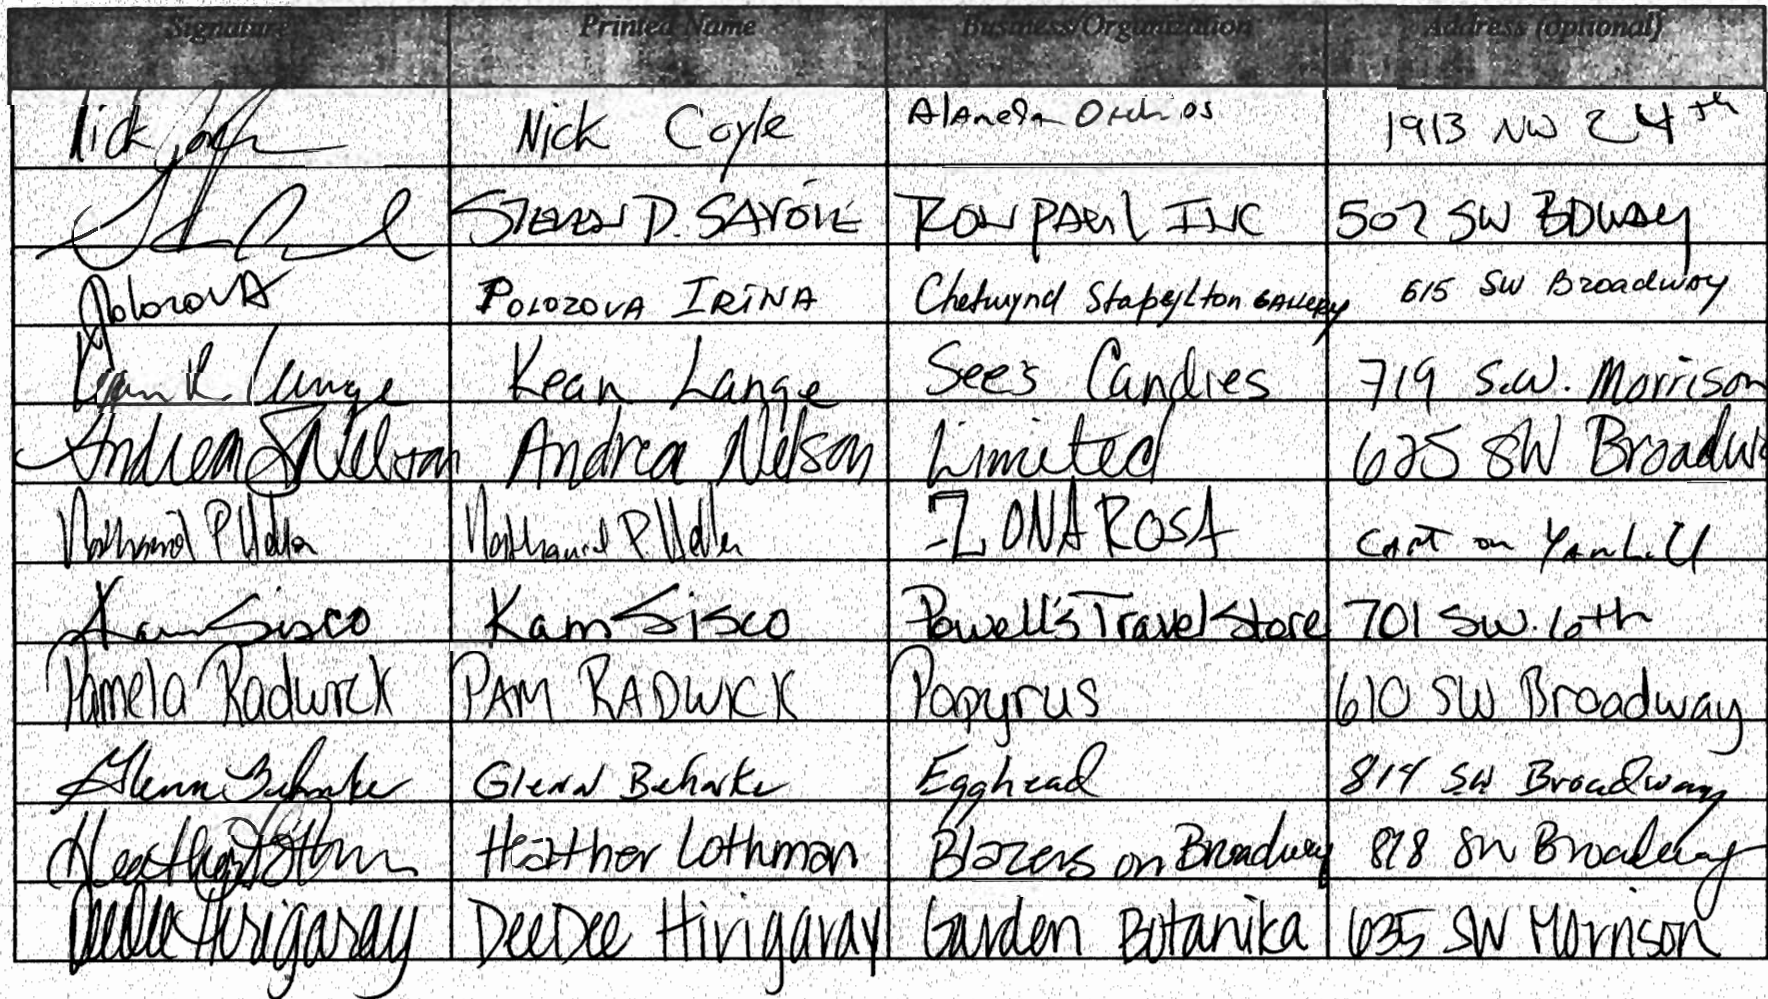 Signature Printed Name Business/Organization Address (optional)
Nick Coyle Nick Coyle 1913 NW 24th
STEVEN D. SAVOIE RON PAUL INC 507 SW BDWAY
Polozova POLOZOVA IRINA Chetwynd Stapylton GALLERY 615 SW Broadway
Kean K. Lange Kean Lange See's Candies 719 S.W. Morrison
Andrea Nelson Andrea Nelson Limited 625 SW Broadw
Nathaniel P. Nathaniel P. ZONA ROSA Cart on Yamhill
Kam Sisco Kam Sisco Powell's Travel Store 701 SW. 6th
Pamela Radwick PAM RADWICK Papyrus 610 SW Broadway
Glenn Behnke Glenn Behnke Egghead 814 SW Broadway
Heather Lothman Heather Lothman Blazers on Broadway 818 SW Broadway
DeeDee Hirigaray DeeDee Hirigaray Garden Botanika 635 SW Morrison